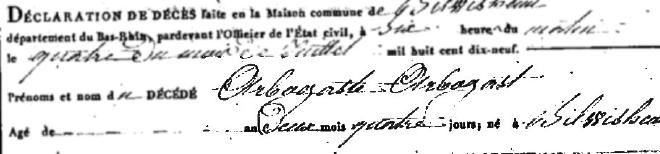 DÉCLARATION DE DÉCÈS faite en la Maison commune de Bilwisheim
département du Bas-Rhin, pardevant l'Officier de l'État civil, à Six heure du matin
le quatre du mois de Juillet mil huit cent dix-neuf.
Prénoms et nom du DÉCÉDÉ Arbogaste Arbogast
Agé de an Deux mois quatre jours; né à Bilwishei